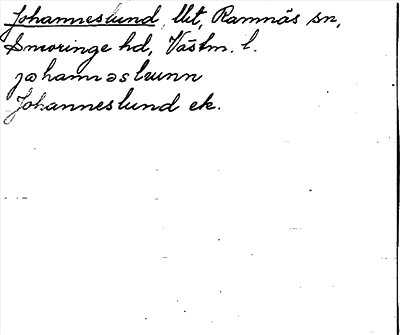 Johanneslund, Ut, Ramnäs sn,
Snevringe hd, Västm. l.
johannəslunn
Johanneslund ek.